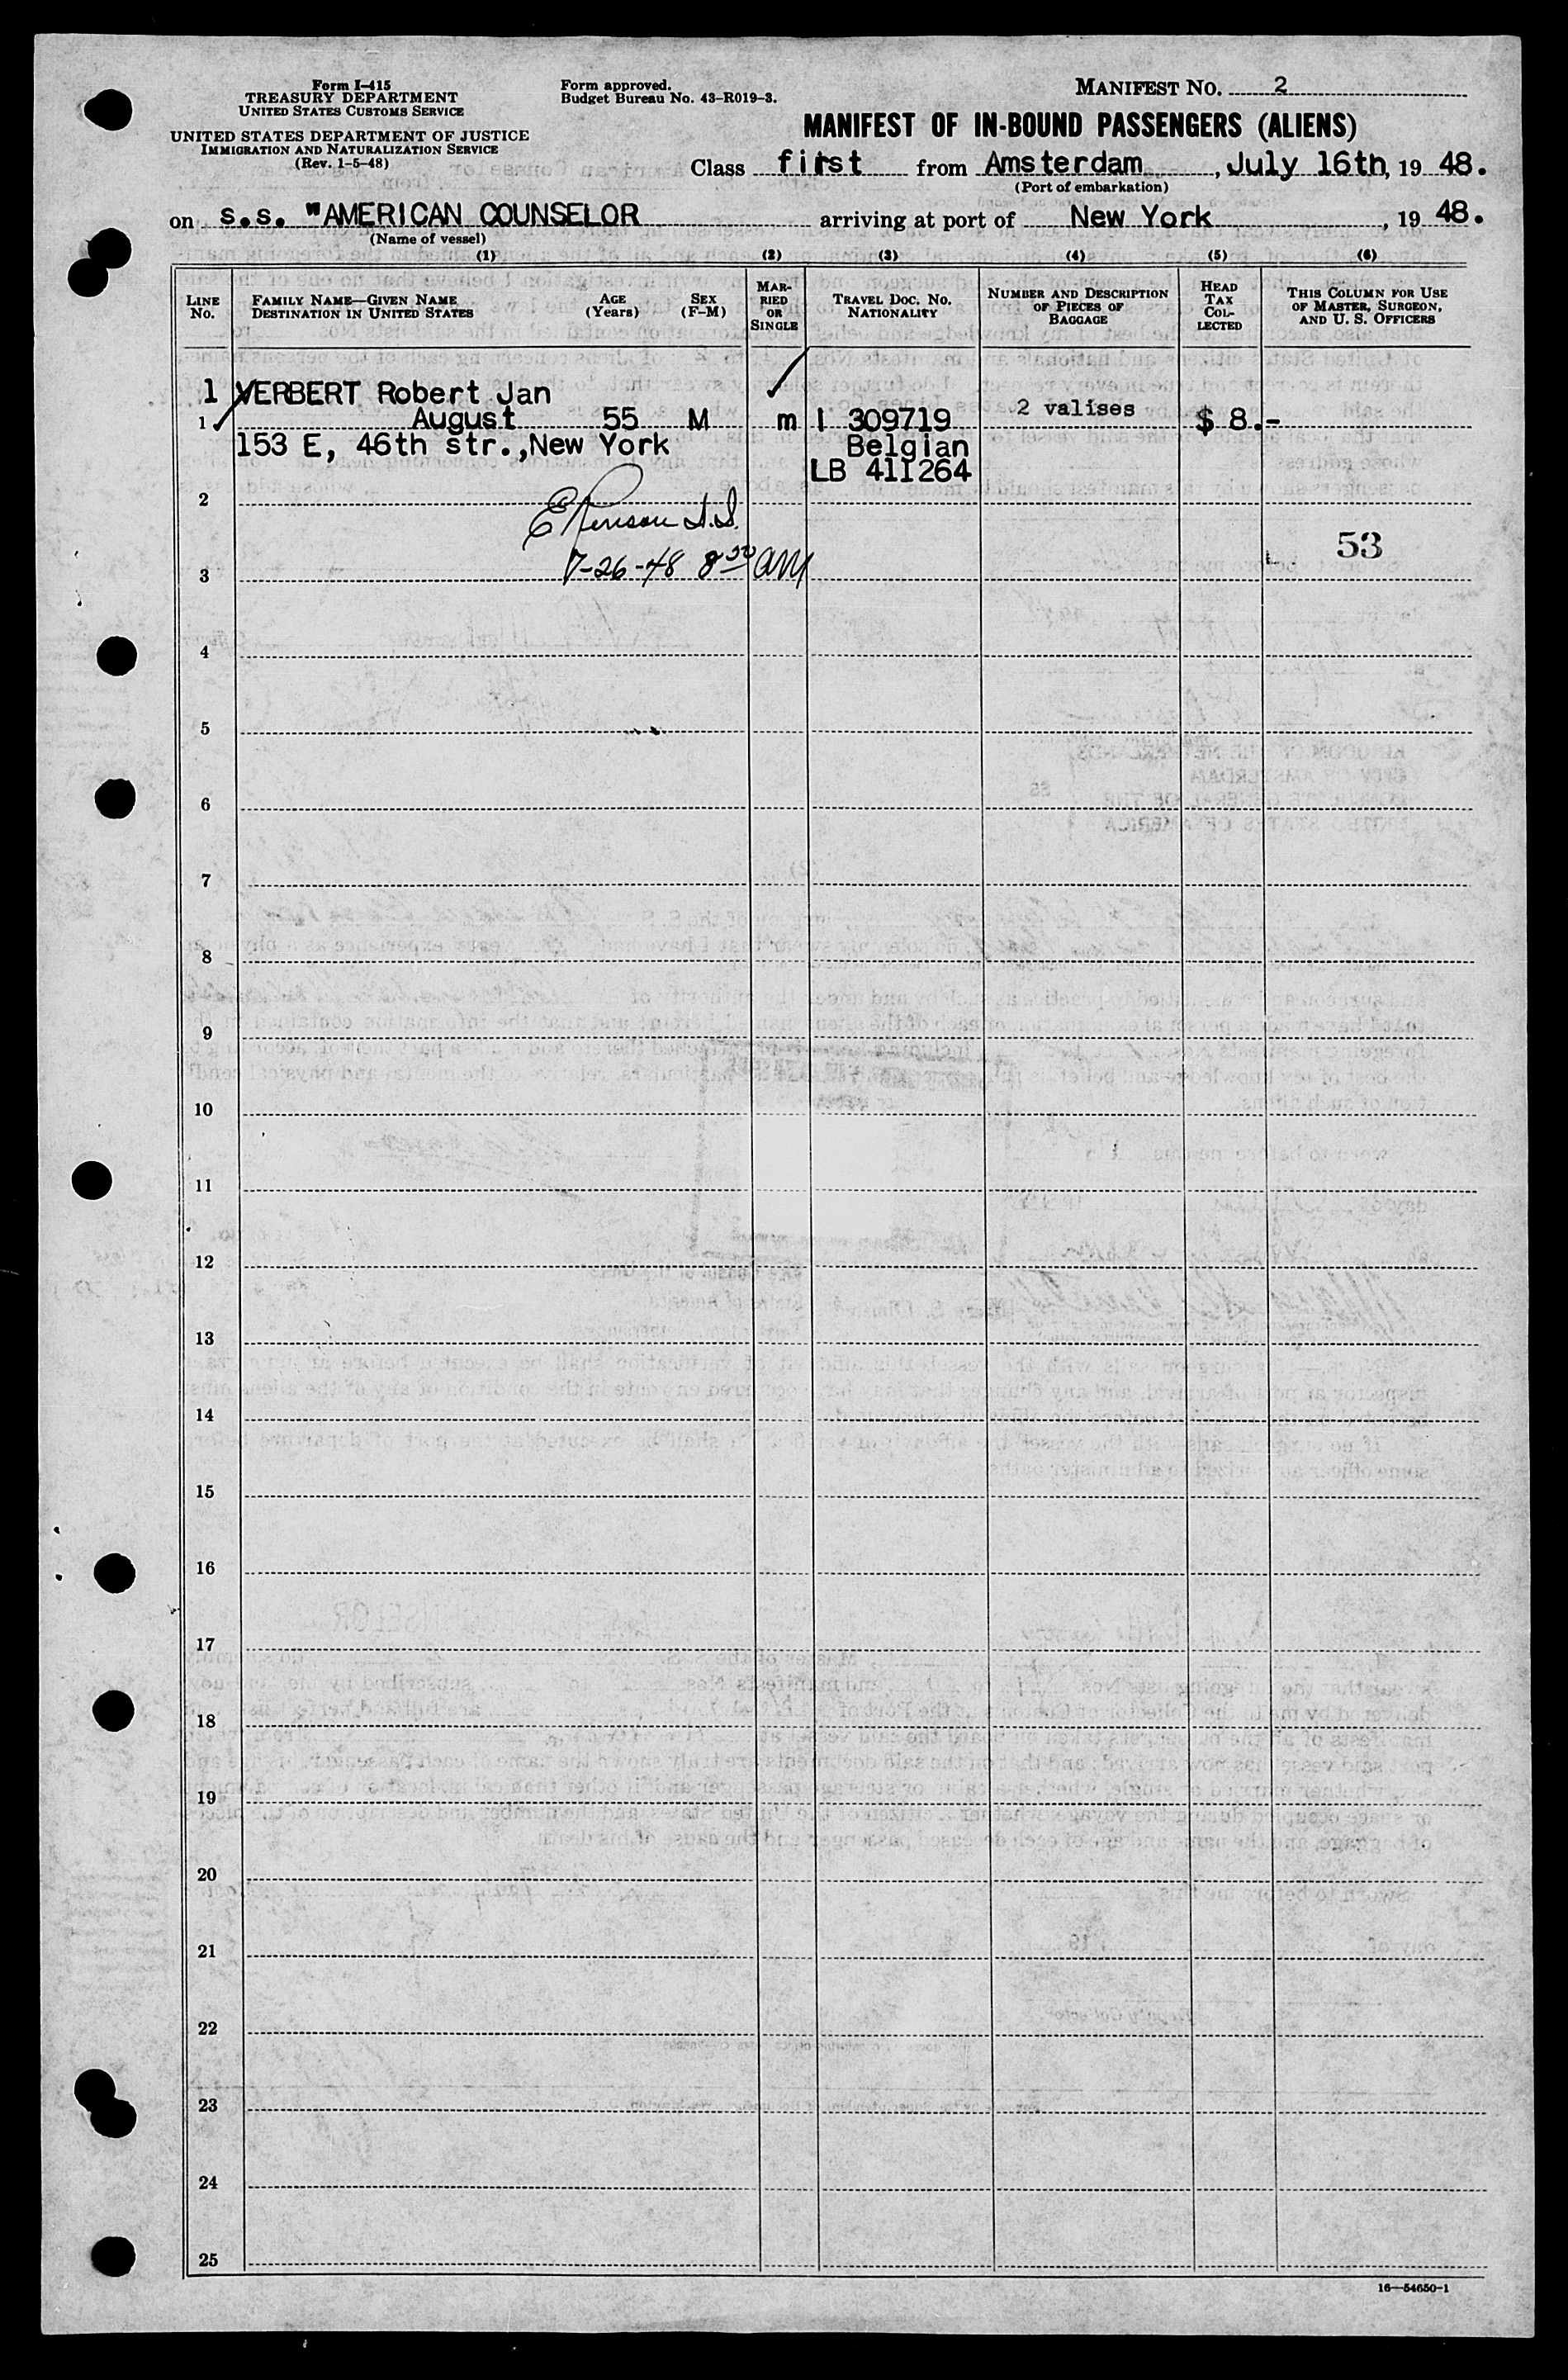 Form I-415
TREASURY DEPARTMENT
UNITED STATES CUSTOMS SERVICE
UNITED STATES DEPARTMENT OF JUSTICE
IMMIGRATION AND NATURALIZATION SERVICE
(Rev. 1-5-48)
Form approved.
Budget Bureau No. 43-R019-3.
MANIFEST NO. 2
MANIFEST OF IN-BOUND PASSENGERS (ALIENS)
Class first from Amsterdam, July 16th, 19 48.
(Port of embarkation)
on s.s. "AMERICAN COUNSELOR arriving at port of New York, 19 48.
(Name of vessel)
(1) (2) (3) (4) (5) (6)
LINE NO.
FAMILY NAME—GIVEN NAME
DESTINATION IN UNITED STATES
AGE (Years)
SEX (F-M)
MARRIED OR SINGLE
TRAVEL DOC. NO.
NATIONALITY
NUMBER AND DESCRIPTION OF PIECES OF BAGGAGE
HEAD TAX COLLECTED
THIS COLUMN FOR USE OF MASTER, SURGEON, AND U. S. OFFICERS
1 VERBERT Robert Jan
1 August 55 M m I 309719 2 valises $ 8.-
153 E, 46th str., New York Belgian
LB 411264
2
7-26-48 8 30 AM
53
3
4
5
6
7
8
9
10
11
12
13
14
15
16
17
18
19
20
21
22
23
24
25
16—54650-1